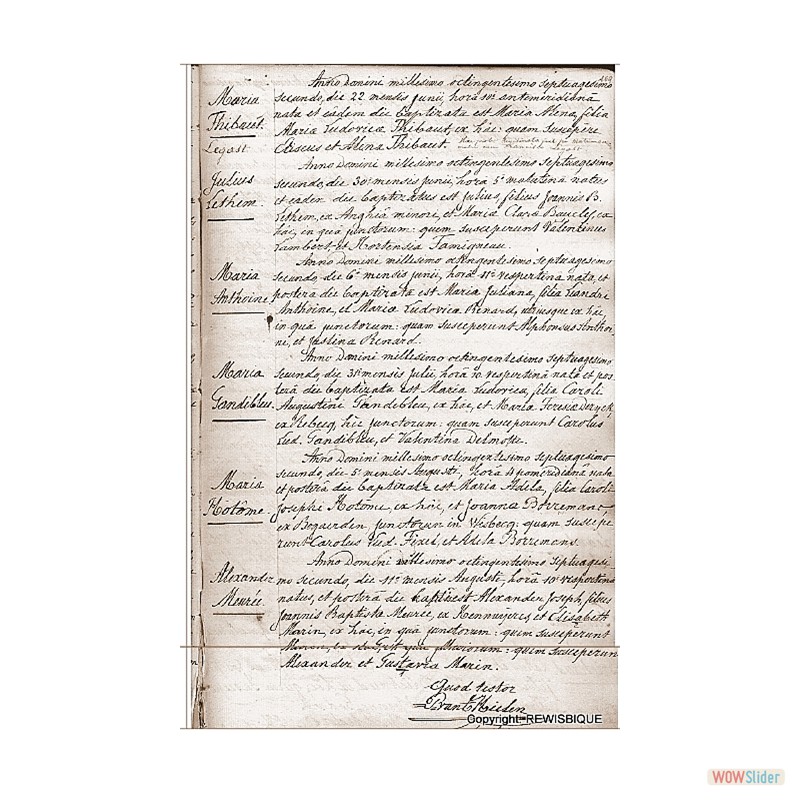 Anno Domini millesimo octingentesimo septuagesimo
Maria
Thibaut.
Legast
secundo, die 22 mensis Junii, horâ 10ᵃ antemeridianâ
nata et eâdem die baptizata est Maria Alena, filia
Maria Ludovica Thibaut, ex hâc: quam suscepere
et Alena Thibaut.
Anno Domini millesimo octingentesimo septuagesimo
Julius
Lethem.
secundo, die 30ᵃ mensis Junii, horâ 5ᵃ matutinâ natus
et eâdem die baptizatus est Julius, filius Joannis B.
Lethem, ex Anghiâ minore, et Maria Clara Bauclef, ex
hâc, in quâ junctorum: quem susceperunt Valentinus
Lambert, et Hortensia Tamigneau.
Anno Domini millesimo octingentesimo septuagesimo
Maria
Anthoine
secundo, die 6ᵃ mensis Junii, horâ 11ᵃ vespertinâ nata, et
posterâ die baptizata est Maria Juliana, filia Leandri
Anthoine, et Maria Ludovica Renard, utriusque ex hâc
in quâ junctorum: quam susceperunt Alphonsus Antho
ni, et Justina Renard.
Anno Domini millesimo octingentesimo septuagesimo
Maria
Gandibleu.
secundo, die 31ᵃ mensis Julii, horâ vespertinâ nata et pos
terâ die baptizata est Maria Ludovica, filia Caroli
Augustini Gandibleu, ex hâc, et Maria Teresia Deryck
ex Rebecq, hîc junctorum: quam susceperunt Carolus
Lud. Gandibleu, et Valentina Delmotte.
Anno Domini millesimo octingentesimo septuagesimo
Maria
Hotôme.
secundo, die 5ᵃ mensis Augusti, horâ pomeridianâ nata
et posterâ die baptizata est Maria Adela, filia Caroli
Josephi Hotome, ex hâc, et Joanna Borremans
ex Bogaerden, junctorum in Wisbecq: quam suscepe
runt Carolus Lud. et Adela Borremans.
Anno Domini millesimo octingentesimo septuagesi
Alexander
Meurée.
mo secundo, die 11ᵃ mensis Augusti, horâ 10ᵃ vespertinâ
natus, et posterâ die Alexander Joseph, filius
Joannis Baptista Meurée, ex Hennuyeres et Elisabeth
Marin, ex hâc, in quâ junctorum: quem susceperunt
quem susceperun
Alexander et Gustavia Marin.
Quod testor
Copyright-REWISBIQUE
WOWSlider